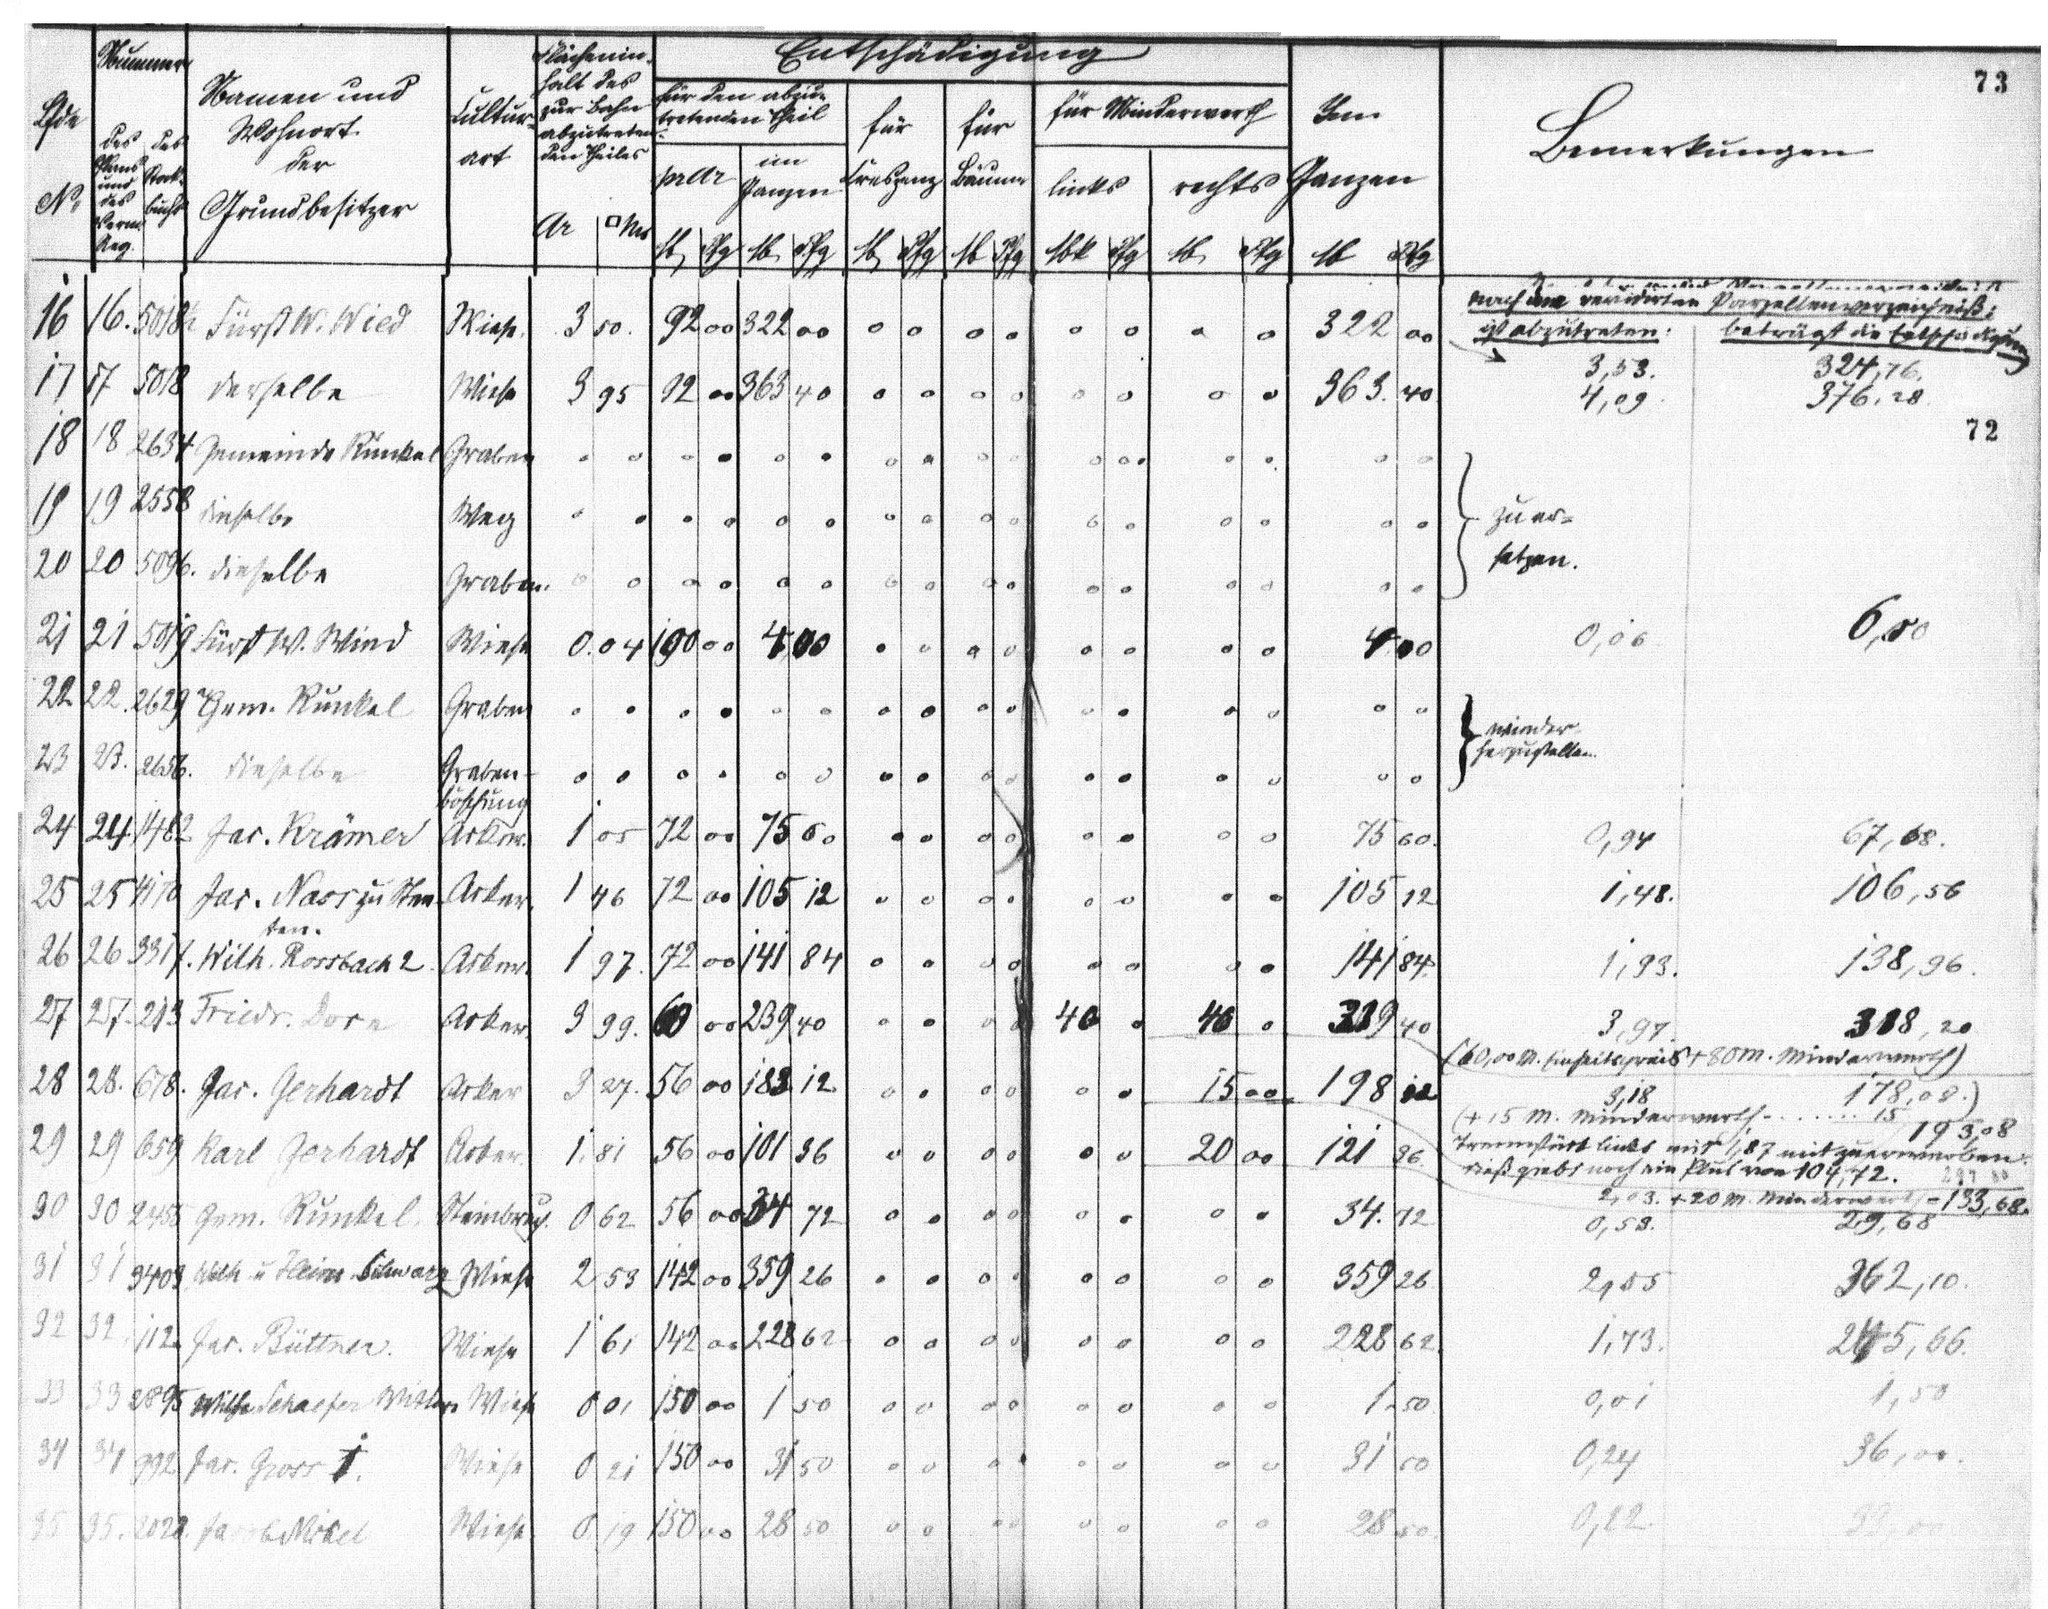 73
Entschädigung
Lfde
No
Nummer
des Plans und des Verm. Reg.
des Stockbuchs
Namen und
Wohnort
der
Grundbesitzer
Cultur-
art
Flächenin-
halt des
zur Bahn
abzutreten-
den Theiles
Ar □Mtr
für den abzu-
tretenden Theil
pr Ar
im
Ganzen
für
Creszenz
für
Bäume
für Minderwerth
links rechts
Im
Ganzen
Bemerkungen
M Pfg M Pfg M Pfg M Pfg Mk Pfg M Pfg M Pfg
nach dem revidirten Parzellenverzeichniß:
ist abzutreten: beträgt die Entschädigung
16 16. 5018½ Fürst W. Wied Wiese. 3 50. 92 00 322 00 0 0 0 0 0 0 0 0 322 00 3,53. 324,76.
17 17 5018 derselbe Wiese 3 95 92 00 363 40 0 0 0 0 0 0 0 0 363. 40 4,09. 376,28
72
18 18 2634 Gemeinde Runkel Graben 0 0 0 0 0 0 0 0 0 0 0 0 0 0 0 0
19 19 2558 dieselbe Weg 0 0 0 0 0 0 0 0 0 0 0 0 0 0 0 0 zu er-
20 20 5096. dieselbe Graben. 0 0 0 0 0 0 0 0 0 0 0 0 0 0 0 0 setzen.
21 21 5019 Fürst W. Wied Wiese 0.04 100 00 4,00 0 0 0 0 0 0 0 0 4 00 0,06 6,00
22 22. 2629 Gem. Runkel Graben 0 0 0 0 0 0 0 0 0 0 0 0 0 0 0 0 wieder
23 23. 2656. dieselbe Graben- 0 0 0 0 0 0 0 0 0 0 0 0 0 0 0 0 herzustellen.
böschung
24 24. 1482 Jac. Krämer Acker. 1 05 72 00 75 60 0 0 0 0 0 0 0 0 75 60. 0,94 67,68.
25 25 4170 Jac. Nass zu Stee- Acker. 1 46 72 00 105 12 0 0 0 0 0 0 0 0 105 12 1,48. 106,56
ten.
26 26 3317. Wilh. Rossbach 2. Acker. 1 97. 72 00 141 84 0 0 0 0 0 0 0 0 141 84. 1,93. 138,96.
27 27. 213 Friedr. Dorn Acker. 3 99. 60 00 239 40 0 0 0 0 40 0 40 0 319 40 3,97. 318,20
(60,00 M. Einheitspreis + 80 M. Minderwerth)
28 28. 678. Jac. Gerhardt Acker 3 27. 56 00 183 12 0 0 0 0 0 0 15 00 198 12 3,18 178,08.)
(+ 15 M. Minderwerth - . . . . . . 15
193,08
29 29 659 Karl Gerhardt Acker. 1. 81 56 00 101 36 0 0 0 0 0 0 20 00 121 36. Trennstück links mit 1,87 mit zu erwerben.
dieß giebt noch ein Plus von 104,72.
2,03. + 20 M. Minderwerth = 133,68.
30 30 2455 Gem. Runkel. Steinbruch. 0 62 56 00 34 72 0 0 0 0 0 0 0 0 34. 72 0,53. 29,68
31 31 3403 Wilh u Heinr. Schwarz Wiese 2 53 142 00 359 26 0 0 0 0 0 0 0 0 359 26. 2,55 362,10.
32 32. 112. Jac. Büttner. Wiese 1 61 142 00 228 62 0 0 0 0 0 0 0 0 228 62. 1,73. 245,66.
33 33 2895 Wilh. Schaefer Wiese 0 01 150 00 1 50 0 0 0 0 0 0 0 0 1.50 0,01 1,50
34 34 992 Jac. Gross 1. Wiese 0 21 150 00 31 50 0 0 0 0 0 0 0 0 31 50 0,24 36,00.
35 35. 2022. Wiese 0 19 150 00 28 50 0 0 0 0 0 0 0 0 28 50. 0,22 33,00